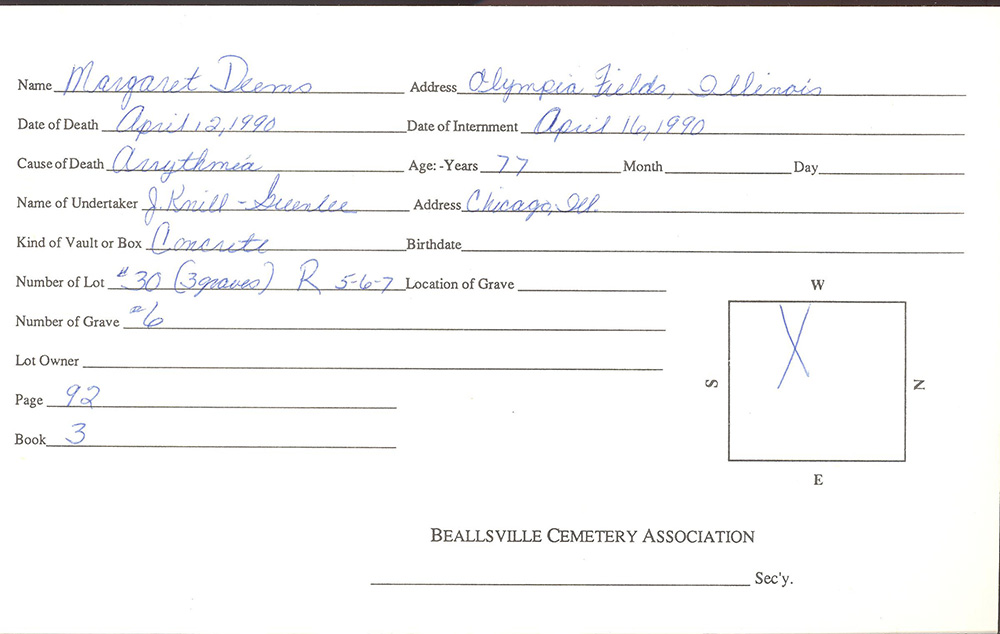 Name Margaret Deems Address Olympia Fields, Illinois
Date of Death April 12, 1990 Date of Internment April 16, 1990
Cause of Death Arrythmia Age: -Years 77 Month Day
Name of Undertaker J. Knill - Greenlee Address Chicago, Ill.
Kind of Vault or Box Concrete Birthdate
Number of Lot #30 (3 graves) R 5-6-7 Location of Grave
Number of Grave #6
Lot Owner
Page 92
Book 3
W
S
N
E
BEALLSVILLE CEMETERY ASSOCIATION
Sec'y.